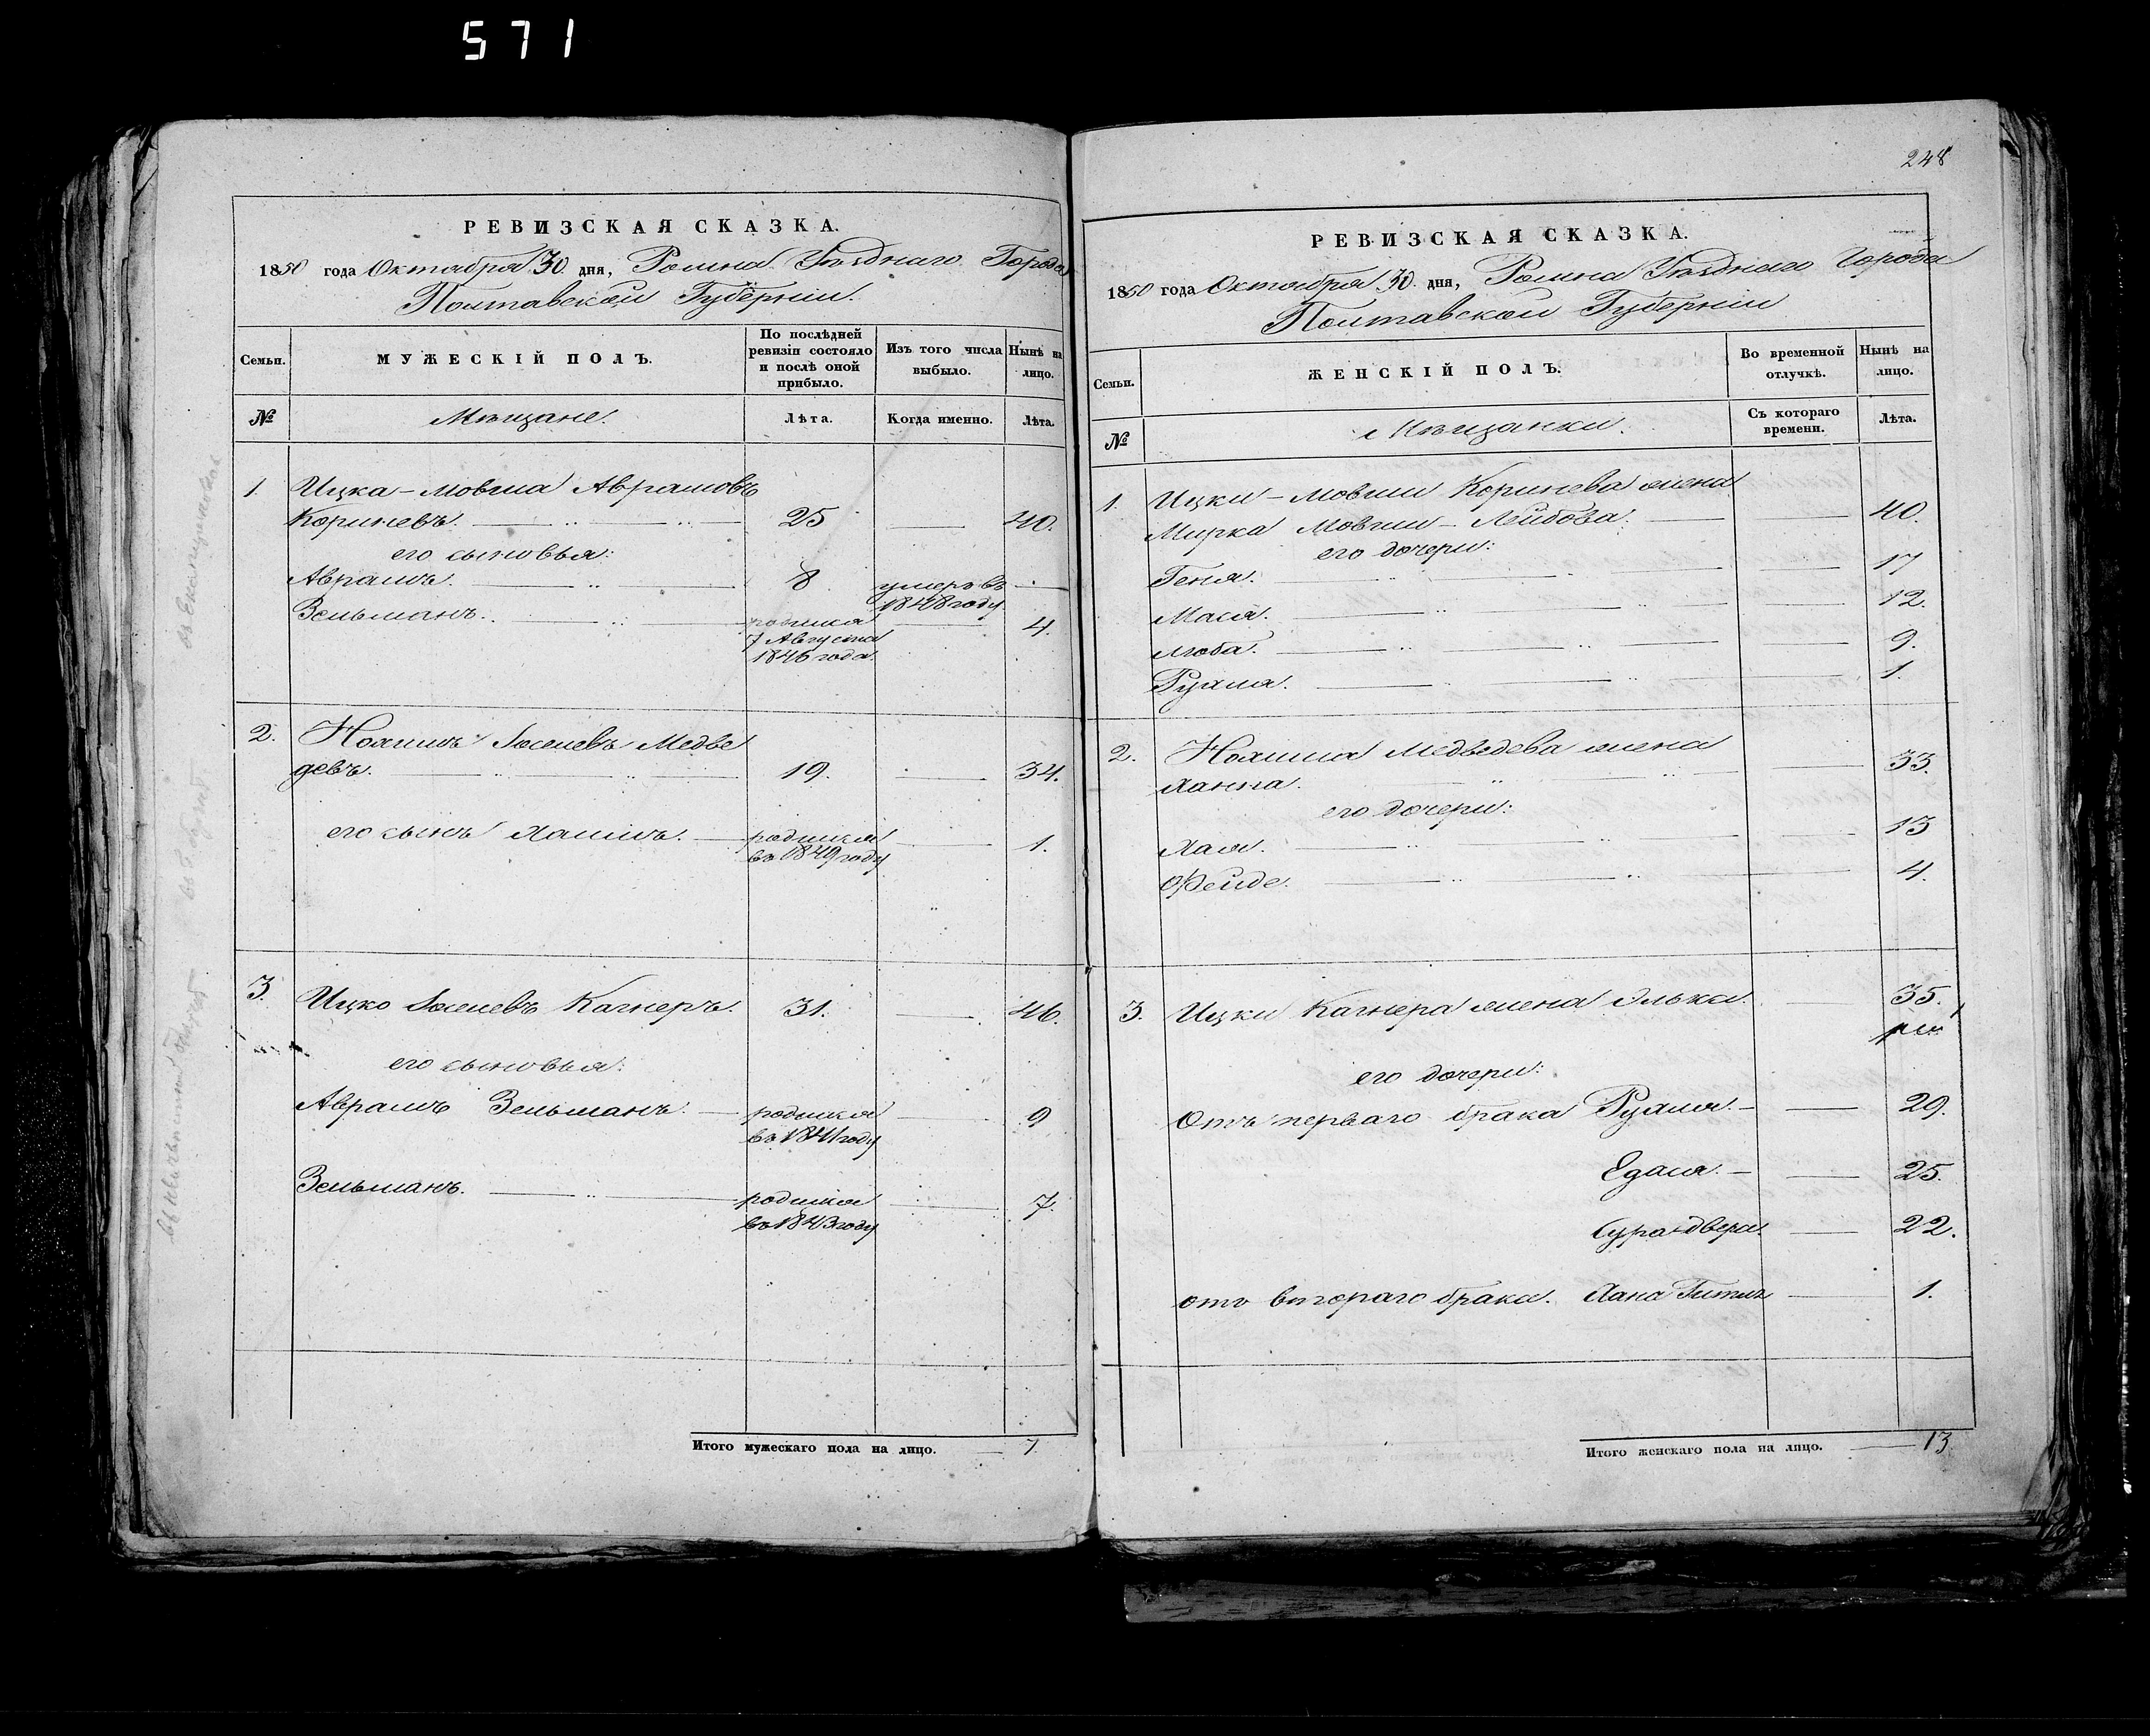 571
РЕВИЗСКАЯ СКАЗКА.
1850 года Октября 30 дня, Ромна Уѣзднаго Города
Полтавской Губерніи.
Семьи.
МУЖЕСКІЙ ПОЛЪ.
По послѣдней ревизіи состояло и послѣ оной прибыло.
Изъ того числа выбыло.
Нынѣ на лицо.
№
Мѣщане.
Лѣта.
Когда именно.
Лѣта.
1. Ицка-Мовша Аврамовъ
Кориневъ. 25 40.
его сыновья:
Аврамъ. 8 умеръ въ
1848 году
Зельманъ. родился 4.
7 Августа
1846 года.
2. Нохимъ Медве
девъ. 19. 34.
его сынъ Хаимъ. родился 1.
въ 1849 году
3. Ицко Кагнеръ. 31. 46.
его сыновья:
Аврамъ Зельманъ. родился 9
въ 1841 году
Зельманъ. родился 7.
въ 1843 году
Итого мужескаго пола на лицо. 7.
248
РЕВИЗСКАЯ СКАЗКА.
1850 года Октября 30 дня, Ромна Уѣзднаго Города
Полтавской Губерніи
Семьи.
ЖЕНСКІЙ ПОЛЪ.
Во временной отлучкѣ.
Нынѣ на лицо.
№
Мѣщанки.
Съ котораго времени.
Лѣта.
1. Ицки-Мовши Коринева жена
Мирка Мовши-Лейбова. 40.
его дочери:
Геня. 17
Мася. 12.
Люба. 9.
Рухля. 1.
2. Нохима Медведева жена
Ханна. 33.
его дочери:
Хая. 13
Фейде. 4.
3. Ицки Кагнера жена Элька. 35.
его дочери:
Отъ перваго брака Рухля. 29.
Едася. 25.
Сура-двера. 22.
отъ втораго брака. Хана Гитля 1.
Итого женскаго пола на лицо. 13